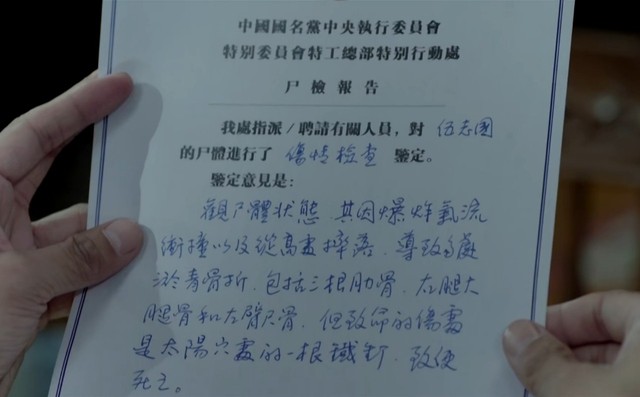 中國國名黨中央執行委員會
特别委員會特工總部特别行動處
尸檢報告
我處指派/聘請有關人員,對 伍志國
的尸體進行了 傷情檢查 鑒定。
鑒定意見是:
觀尸體狀態,其因爆炸氣流
衝撞以及從高處摔落,導致多處
淤青骨折,包括三根肋骨,左腿大
腿骨和左臂尺骨,但致命的傷處
是太陽穴處的一根鐵釘,致使
死亡。